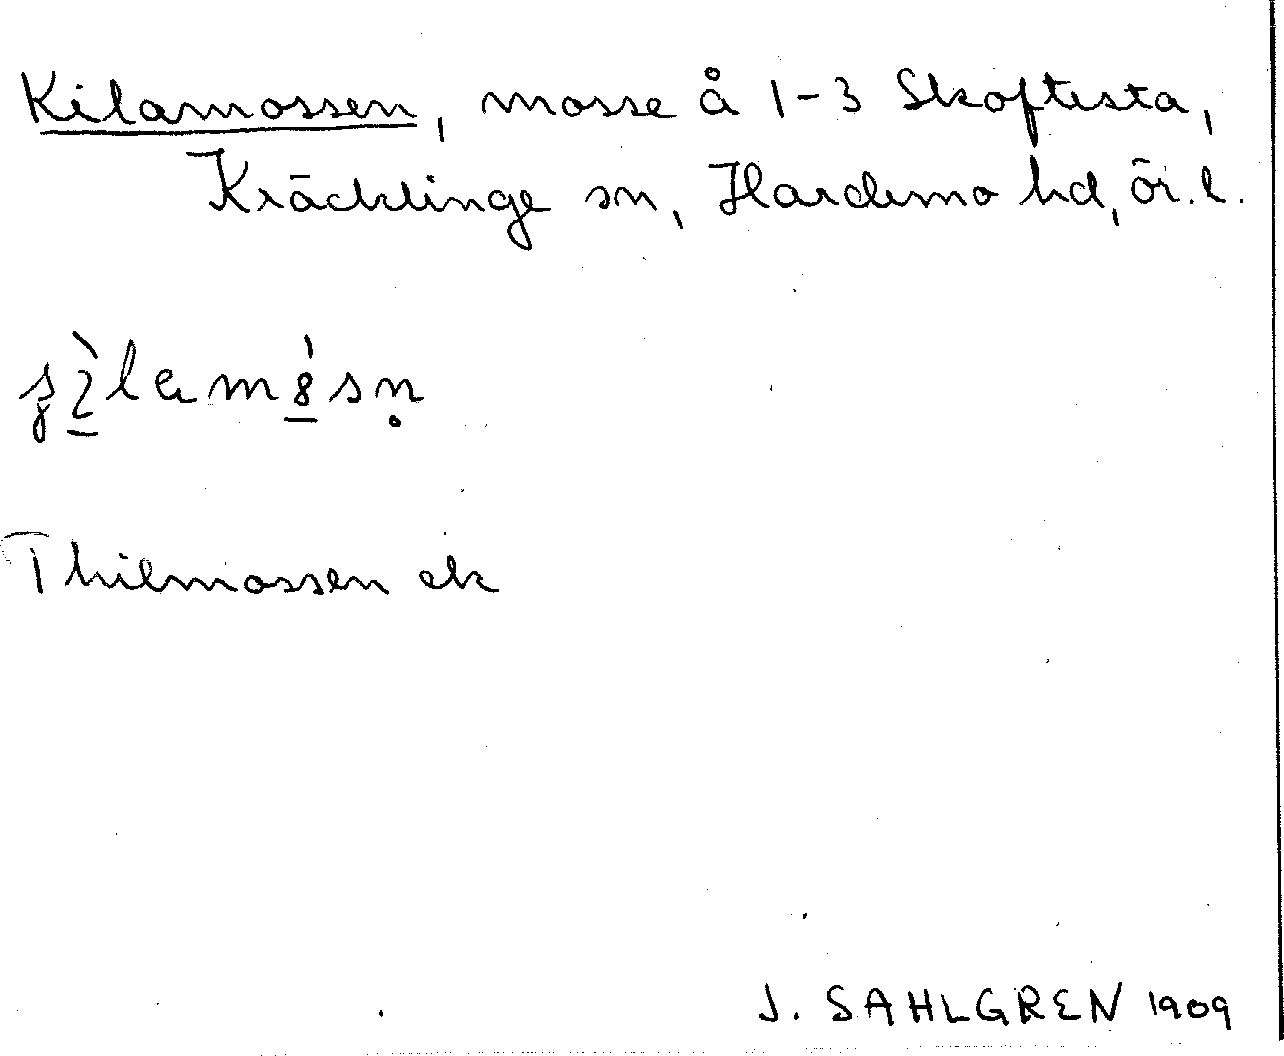 Kilamossen, mosse å 1-3 Skoftesta,
Kräcklinge sn, Hardemo hd, ör. l.
Thilmossen ek
J. SAHLGREN 1909